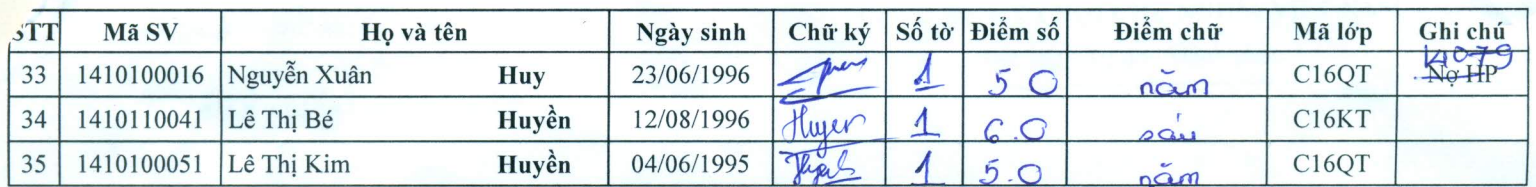 STT Mã SV Họ và tên Ngày sinh Chữ ký Số tờ Điểm số Điểm chữ Mã lớp Ghi chú
33 1410100016 Nguyễn Xuân Huy 23/06/1996 1 5 0 năm C16QT Nợ HP
34 1410110041 Lê Thị Bé Huyền 12/08/1996 Huyen 1 6.0 sáu C16KT
35 1410100051 Lê Thị Kim Huyền 04/06/1995 1 5.0 năm C16QT